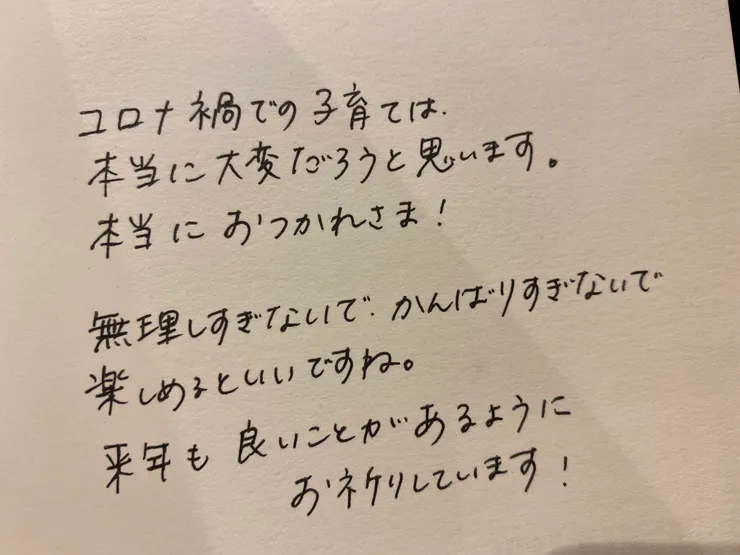 コロナ禍での子育ては、
本当に大変だろうと思います。
本当に おつかれさま!
無理しすぎないで、がんばりすぎないで
楽しめるといいですね。
来年も 良いことがあるように
お祈りしています!